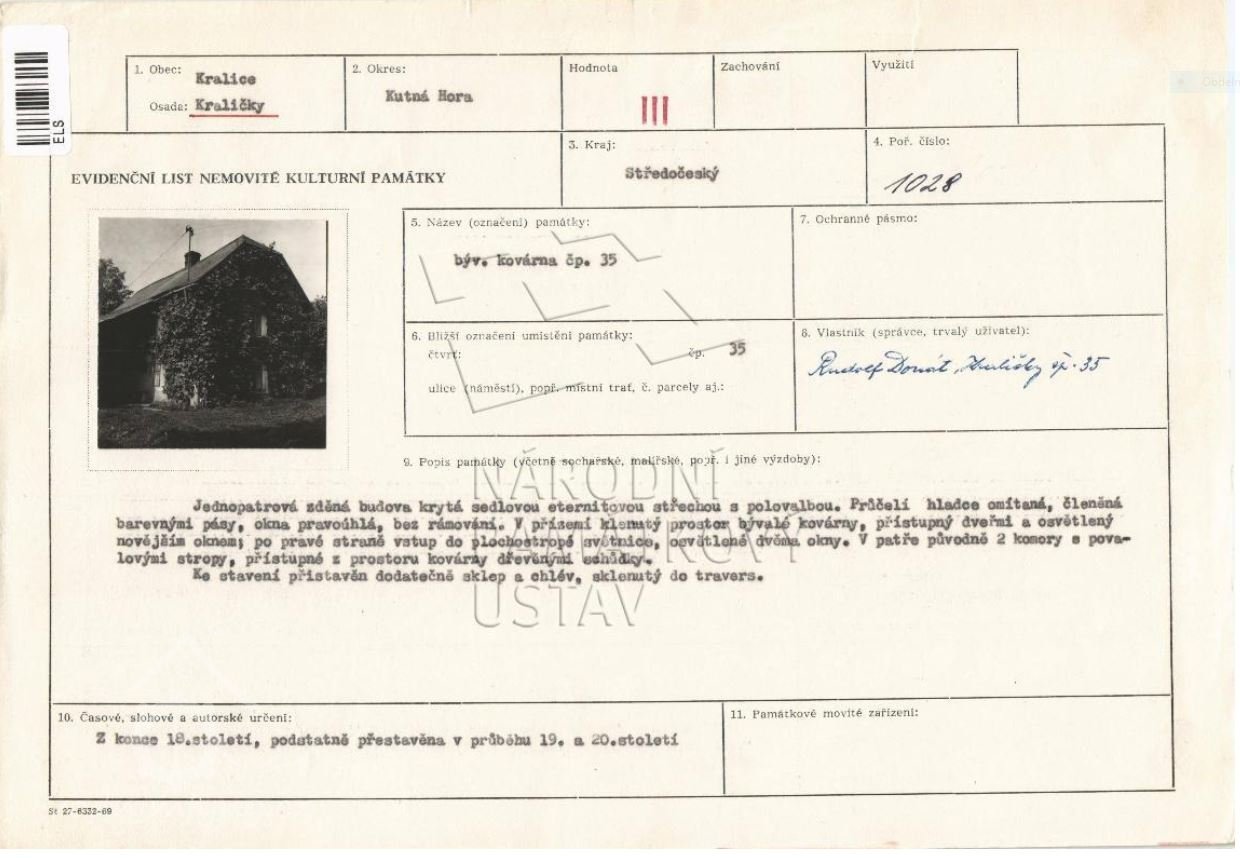 1. Obec: Kralice
Osada: Kraličky
2. Okres:
Kutná Hora
Hodnota
III
Zachování
Využití
ELS
EVIDENČNÍ LIST NEMOVITÉ KULTURNÍ PAMÁTKY
3. Kraj:
Středočeský
4. Poř. číslo:
1028
5. Název (označení) památky:
býv. kovárna čp. 35
7. Ochranné pásmo:
6. Bližší označení umístění památky:
čtvrť: čp. 35
ulice (náměstí), popř. místní trať, č. parcely aj.:
8. Vlastník (správce, trvalý uživatel):
Rudolf Donát, čp. 35
9. Popis památky (včetně sochařské, malířské, popř. i jiné výzdoby):
Jednopatrová zděná budova krytá sedlovou eternitovou střechou s polovalbou. Průčelí hladce omítaná, členěná
barevnými pásy, okna pravoúhlá, bez rámování. V přízemí klenutý prostor bývalé kovárny, přístupný dveřmi a osvětlený
novějším oknem; po pravé straně vstup do plochostropé světnice, osvětlené dvěma okny. V patře původně 2 komory s pova-
lovými stropy, přístupné z prostoru kovárny dřevěnými schůdky.
Ke stavení přistavěn dodatečně sklep a chlév, sklenutý do travers.
NÁRODNÍ
PAMÁTKOVÝ
ÚSTAV
10. Časové, slohové a autorské určení:
Z konce 18.století, podstatně přestavěna v průběhu 19. a 20.století
11. Památkové movité zařízení:
St 27-6332-69